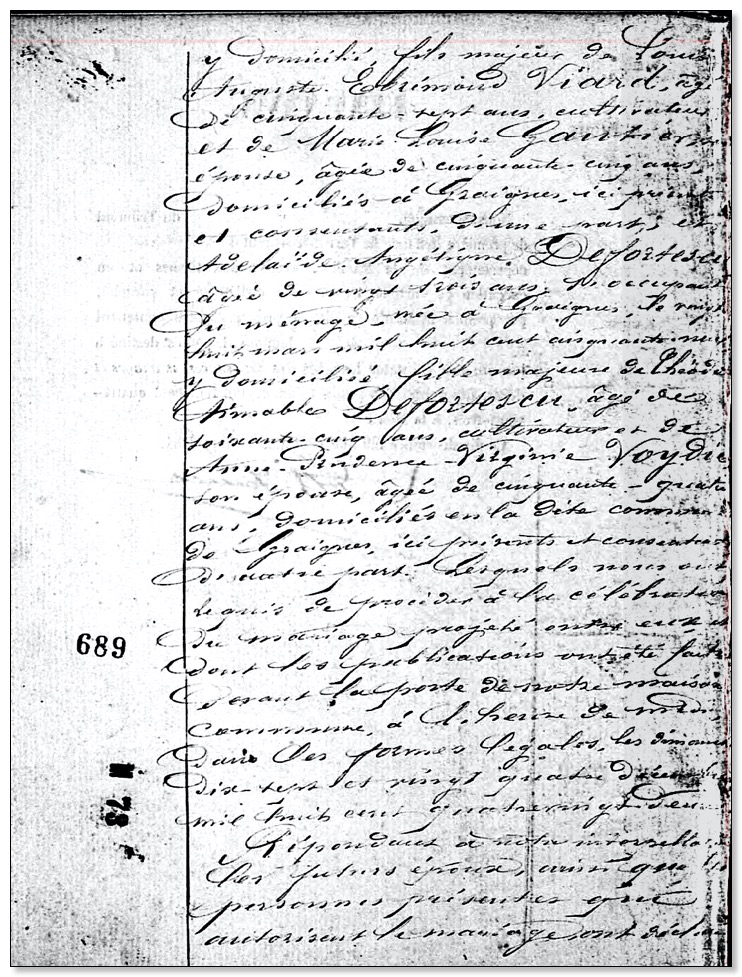 y domicilié, fils majeur de Louis
Auguste Ebrémond Viard, âgé
de cinquante-sept ans, cultivateur
et de Marie Louise Gautier son
épouse, âgée de cinquante-cinq ans,
domiciliés à Graignes, ici présents
et consentants, d'une part; et
Adelaïde Angélique Defortescu
âgée de vingt trois ans, s'occupant
du ménage, née à Graignes, le vingt
huit mars mil huit cent cinquante neuf
y domiciliée fille majeure de Théodore
Aimable Defortescu, âgé de
soixante-cinq ans, cultivateur et de
Anne Prudence Virginie Voydie
son épouse, âgée de cinquante-quatre
ans, domiciliés en la dite commune
de Graignes, ici présents et consentants
d'autre part. Lesquels nous ont
requis de procéder à la célébration
du mariage projeté entre eux et
dont les publications ont été faites
devant la porte de notre maison
commune, à l'heure de midi,
dans les formes légales, les dimanches
dix-sept et vingt quatre décembre
mil huit cent quatrevingt deux
Répondant à notre interpella
les futurs époux, ainsi que les
personnes présentes qui
autorisent le mariage, ont déclaré
689
M
78